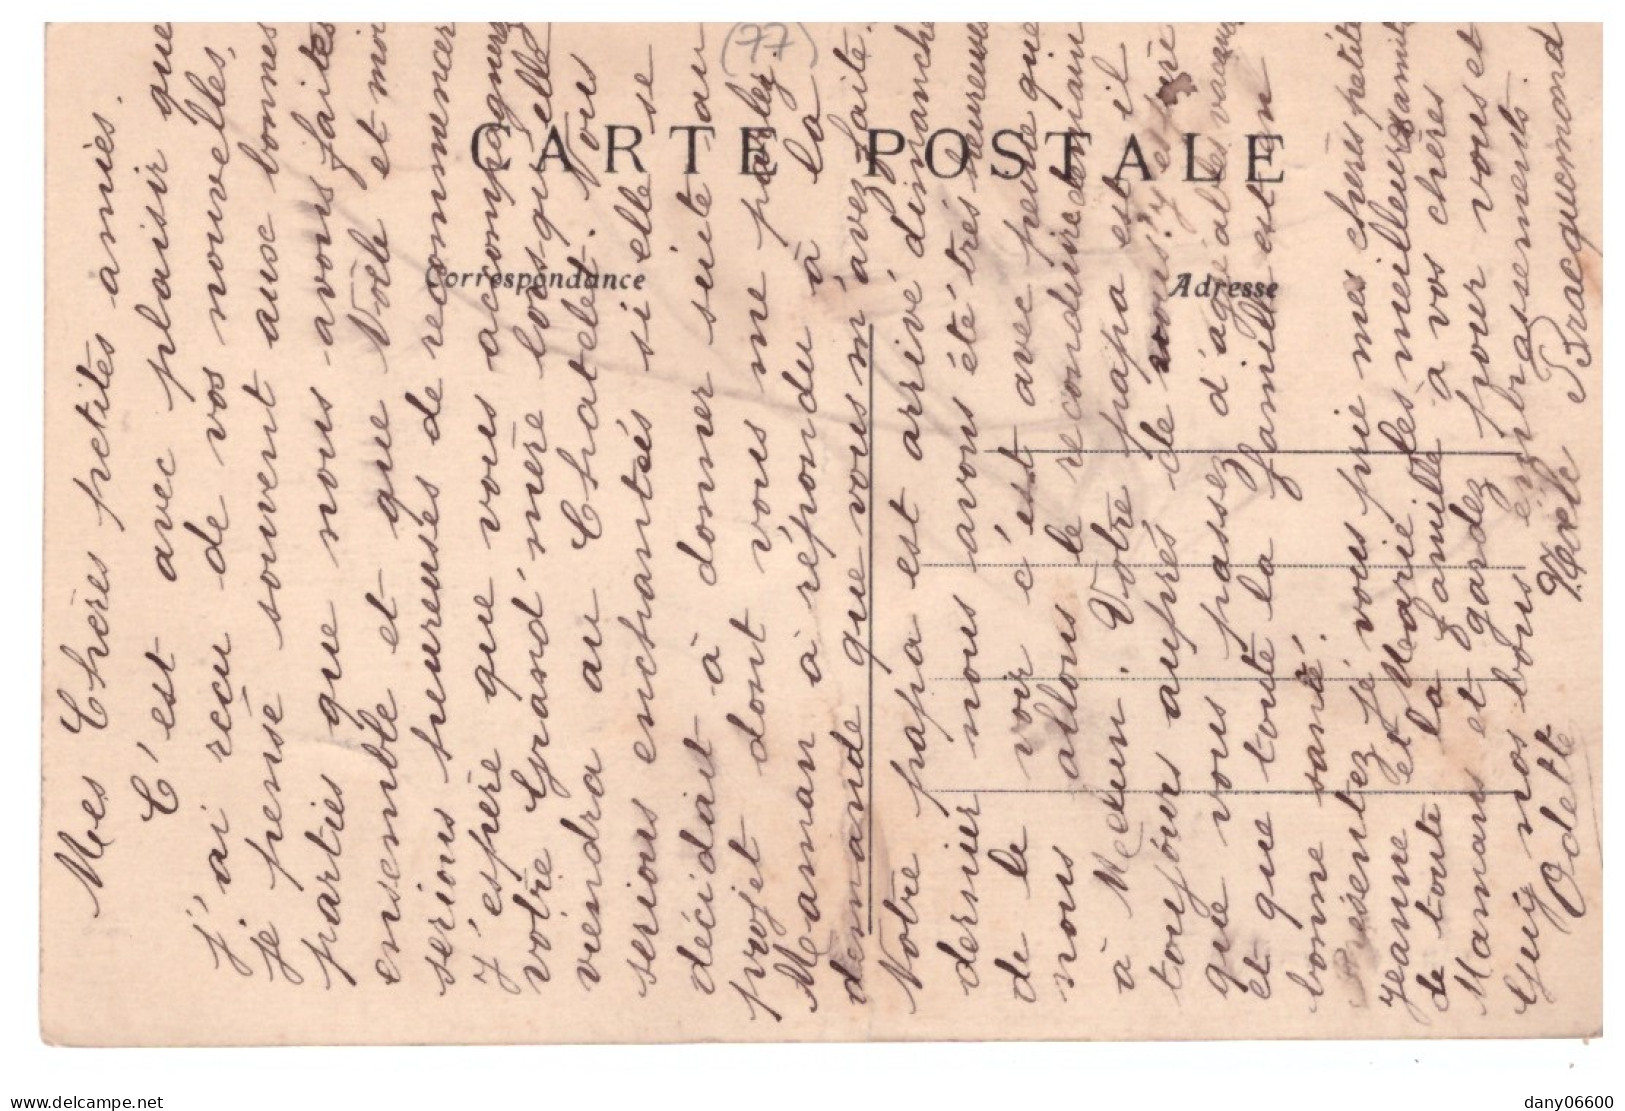 (77)
CARTE POSTALE
Correspondance
Adresse
Mes Chères petites amies.
C'est avec plaisir que
j'ai reçu de vos nouvelles,
je pense souvent aux bonnes
parties que nous avons faites
ensemble et que Nole et moi
serions heureuses de recommencer
J'espère que vous accompagnerez
votre Grand'mère lorsqu'elle
viendra au Chatelet. Nous
serions enchantés si elle se
décidait à donner suite au
projet dont vous me parlez.
Maman à répondu à la
demande que vous m'avez faite.
Notre papa est arrivé dimanche
dernier nous avons été très heureuses
de le voir c'est avec peine que
nous allons le reconduire demain
à Melun. Votre papa est-il
toujours auprès de vous? J'espère
que vous passez d'agréables vacances
et que toute la famille est en
bonne santé.
Présentez je vous prie mes chères petites
Jeanne et Marie les meilleurs amitiés
de toute la famille à vos chères
Mamans et gardez pour vous et
Guy nos bons embrassements.
Odette Nole Bracquemond
dany06600
www.delcampe.net